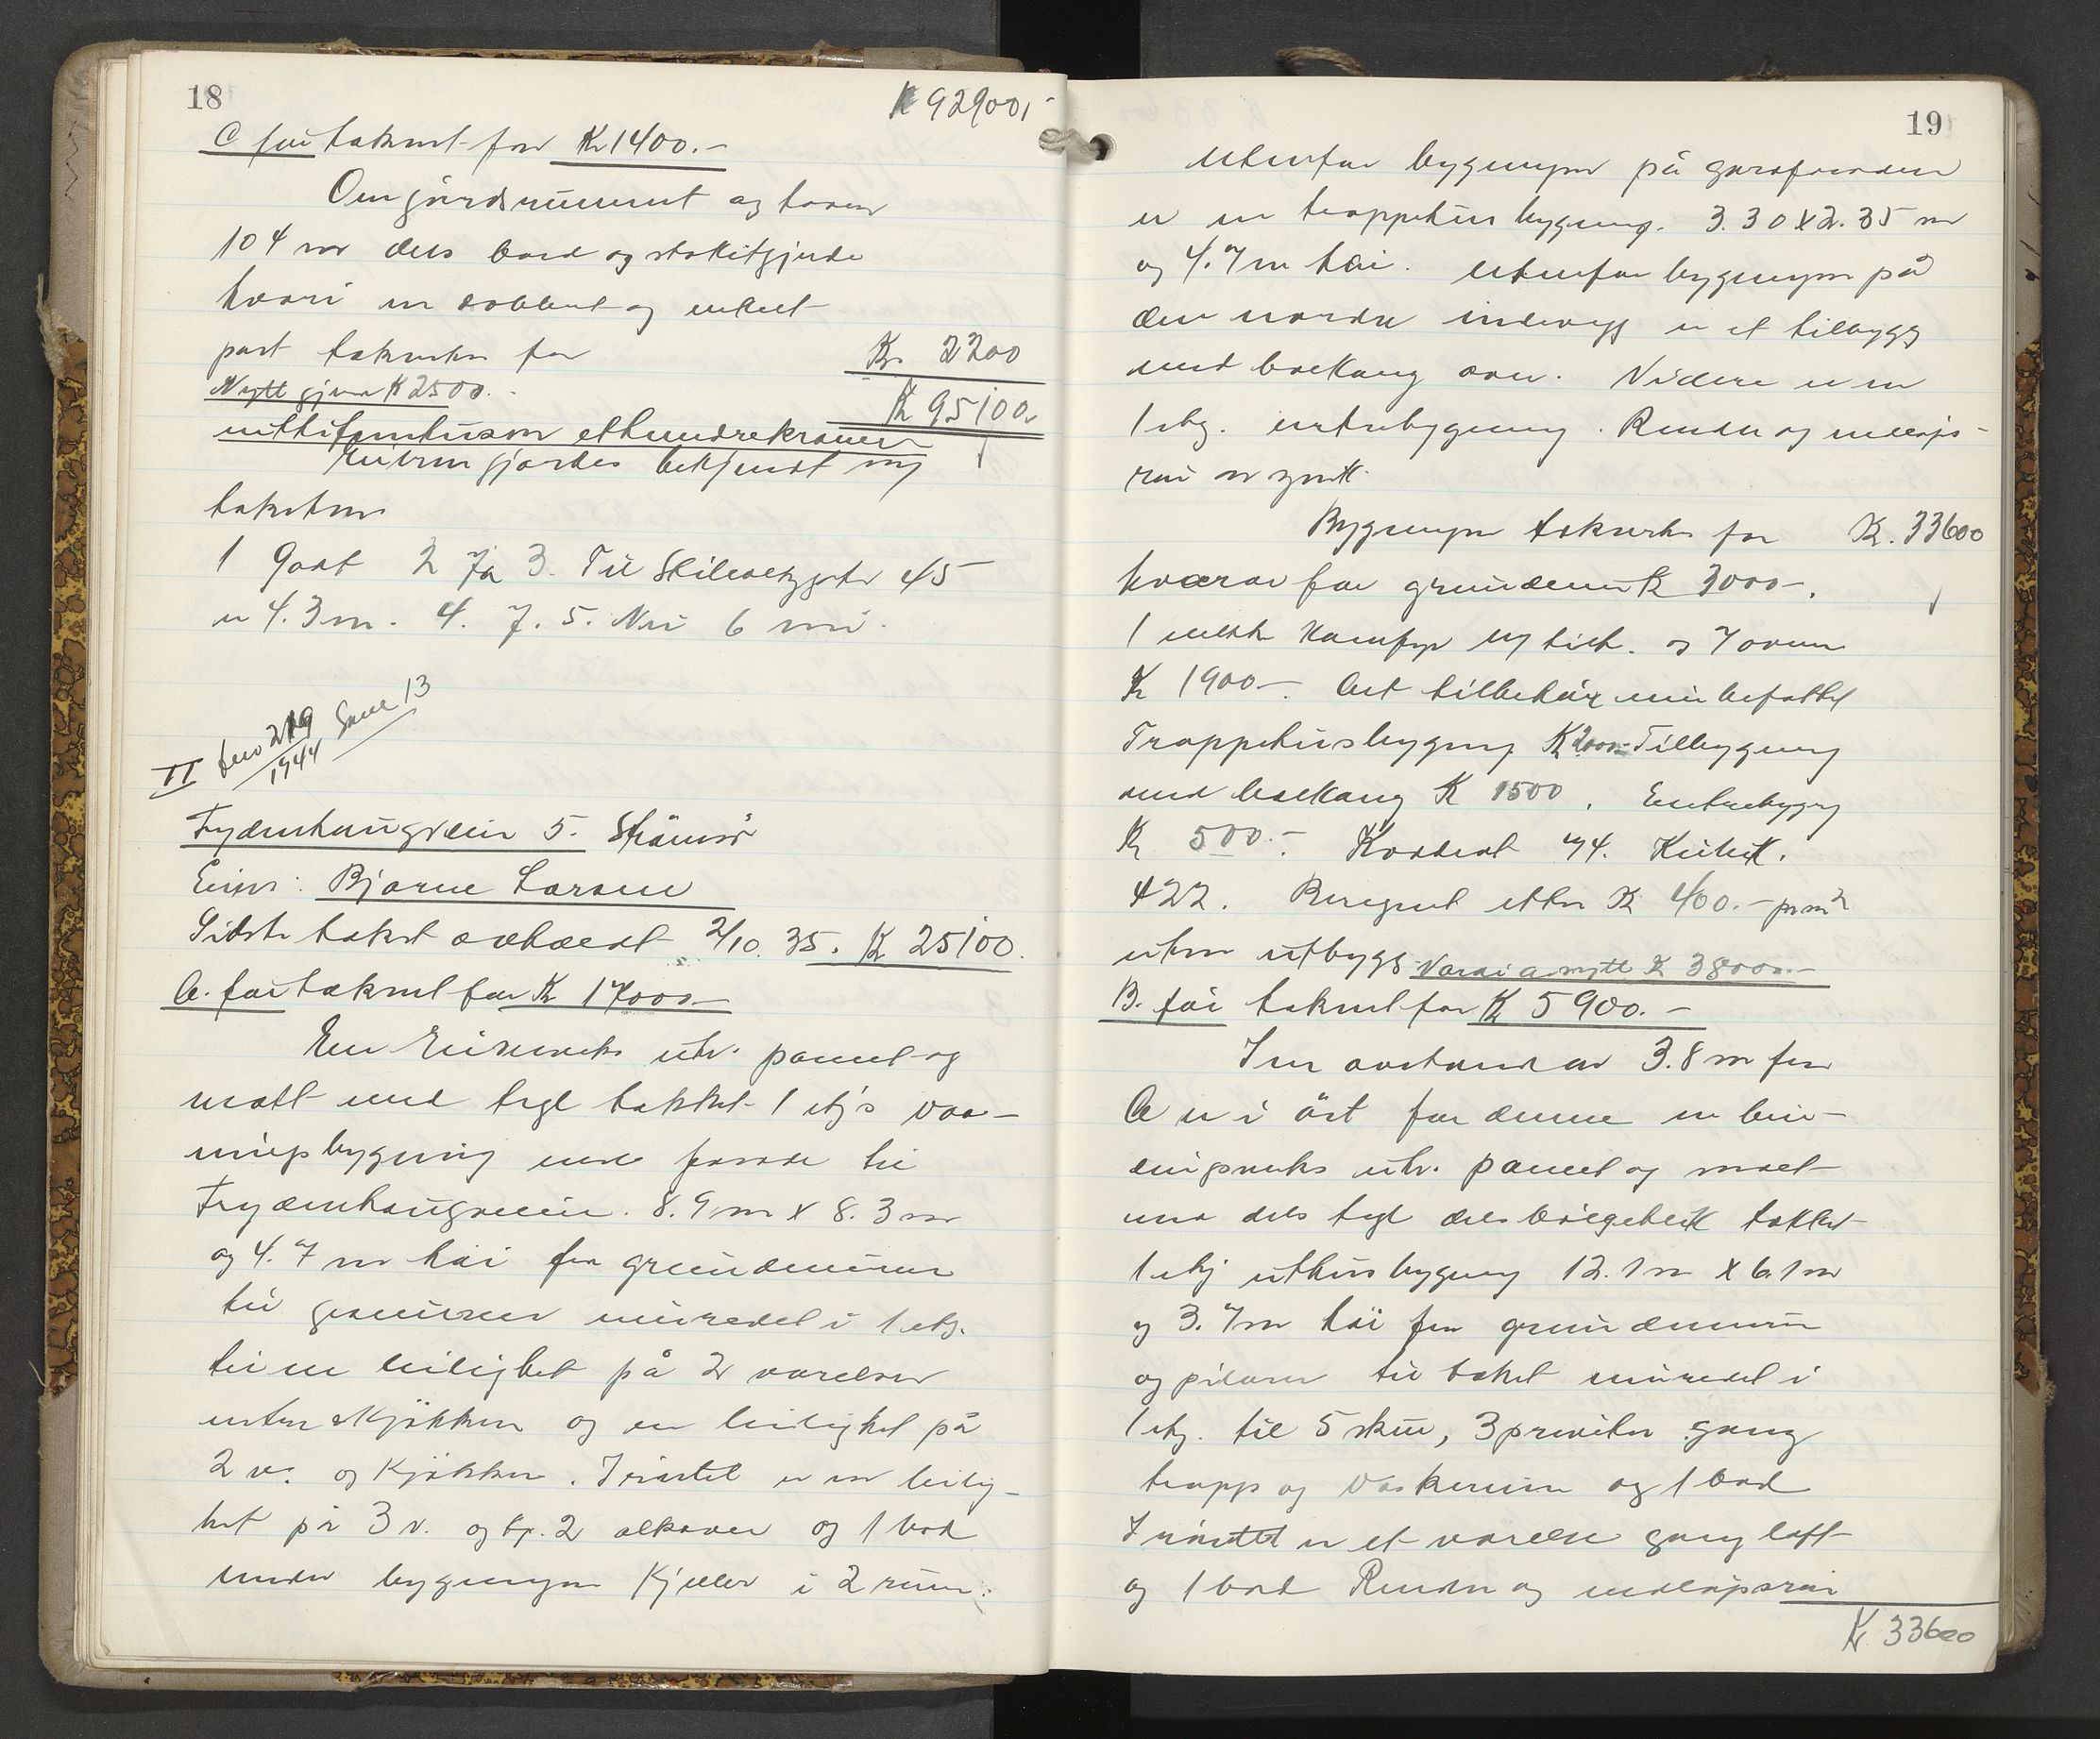 18
K 92900,-
C før takseret for Kr 1400.-
Om gårdsrummet og haven
104 m dels bord og stakitgjerde
hvori en dobbelt og enkelt
port takseres for Kr 2200
Nytt gjerde K 2500.-
K 95100.
nittifemtusen etthundrekroner
Eieren gjordes bekjendt med
taksten
1 Godt 2 Ja 3. Til Skilebygget 45
er 4.3 m. 4. J. 5. Nei 6 nei.
II Lno 219 Sone 13
1944
Frydenhaugveien 5. Strømsø
Eier: Bjarne Larsen
Sidste takst avholdt 2/10. 35. K 25100.
A. før takseret for K 17000.-
En reisverks utv. panel og
malt med tegl tækket 1 etg's vaa-
ningsbygning med fasade til
Frydenhaugveien. 8.9 m x 8.3 m
og 4.7 m høi fra grundmuren
til gesimsen innredet i 1 etg.
til en leilighet på 2 værelser
uten kjøkken og en leilighet på
2 v. og kjøkken. I røstet er en leilig-
het på 3 v. og kj. 2 alkover og 1 bod
under bygningen kjeller i 2 rum.
19
Utenfor bygningen på gardsfasaden
er en trappehus bygning. 3.30 x 2.35 m
og 4.7 m høi. Utenfor bygningen på
den nordre endevegg er et tilbygg
med balkong over. Videre er en
1 etg. entrebygning. Render og nedløps-
rør av zink.
Bygningen takseres for K. 33600
hvorav for grundmur K 3000-.
1 enkelt komfyr m/ tilb. og 7 ovner
K 1900-. Art tilbehør nei befattet
Trappehusbygning K 2000.- Tilbygning
med balkong K 1500. Entrebygg
K 500.-. Kvadrat 74. Kubik.
422. Beregnet etter K 400.- pr m2
uten utbygg Verdi a nytt K 38000.-
B. før takseret for K 5900.-
I en avstand av 3.8 m fra
A er i øst for denne en bin-
dingsverks utv. panel og malt
med dels tegl dels bølgeblekk tækket
1 etg uthusbygning 12.1 m x 6.1 m
og 3.7 m høi fra grundmuren
og pilarer til taket innredet i
1 etg. til 5 skur, 3 priveter gang
trapp og vaskerum og 1 bod
I røstet er et værelse gang loft
og 1 bod Render og nedløpsrør
K 33600